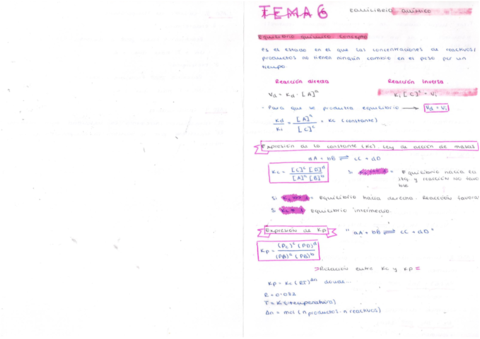 TEMA 6 EQUILIBRIO QUÍMICO
Equilibrio químico: concepto
Es el estado en el que las concentraciones de reactivos/
productos no tienen ningún cambio en el paso por un
tiempo.
Reacción directa Reacción inversa
Vd = Kd · [A]ᵃ Ki [C]ᶜ = Vi
- Para que se produzca equilibrio → Vd = Vi
Kd/Ki = [A]ᵃ/[C]ᶜ = Kc (constante)
Expresión de la constante (Kc) Ley de acción de masas
aA + bB ⇌ cC + dD
Kc = [C]ᶜ [D]ᵈ / [A]ᵃ [B]ᵇ Si = Equilibrio
Si = Equilibrio hacia derecha. Reacción
Si equilibrio intermedio
Expresión de Kp " aA + bB ⇌ cC + dD "
Kp = (Pc)ᶜ (PD)ᵈ / (PA)ᵃ (PB)ᵇ
Relación entre Kc y Kp
Kp = Kc (RT)^Δn donde...
R = 0.082
T = (temperatura)
Δn = mol (n productos - n reactivos)